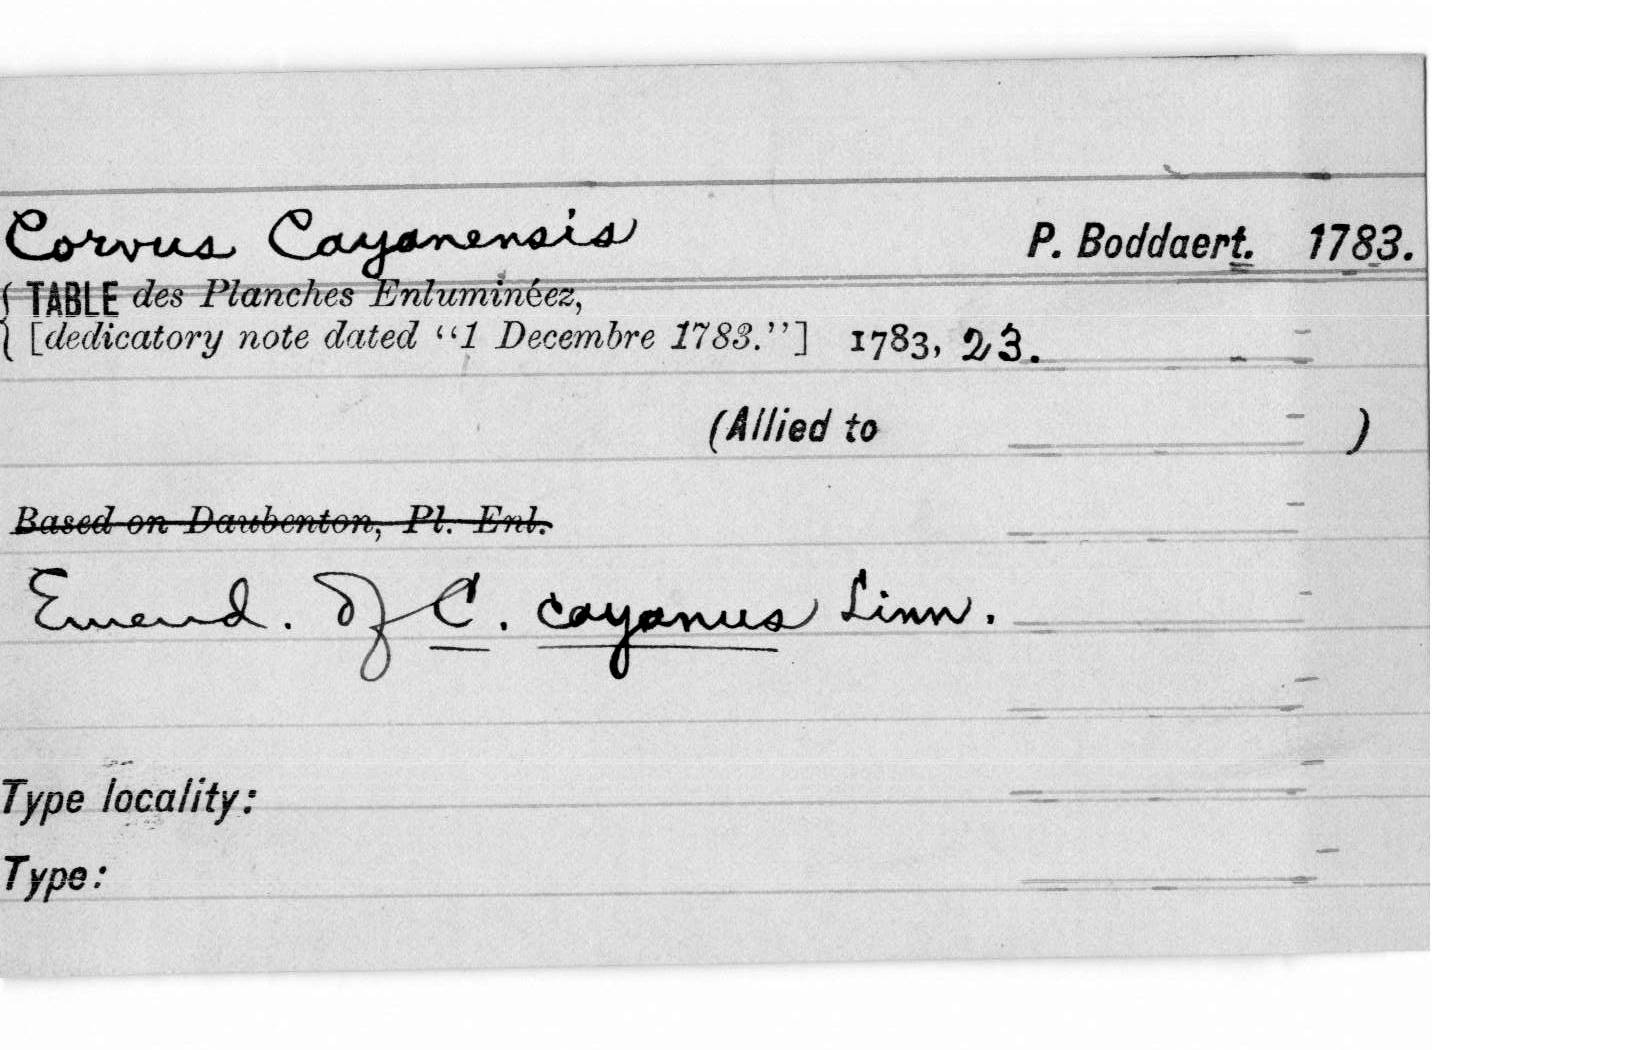 Corvus Cayanensis P. Boddaert. 1783.
{ TABLE des Planches Enluminéez,
[dedicatory note dated “1 Decembre 1783.”] 1783, 23.
(Allied to )
Based on Daubenton, Pl. Enl.
Emend. of C. cayanus Linn.
Type locality:
Type: